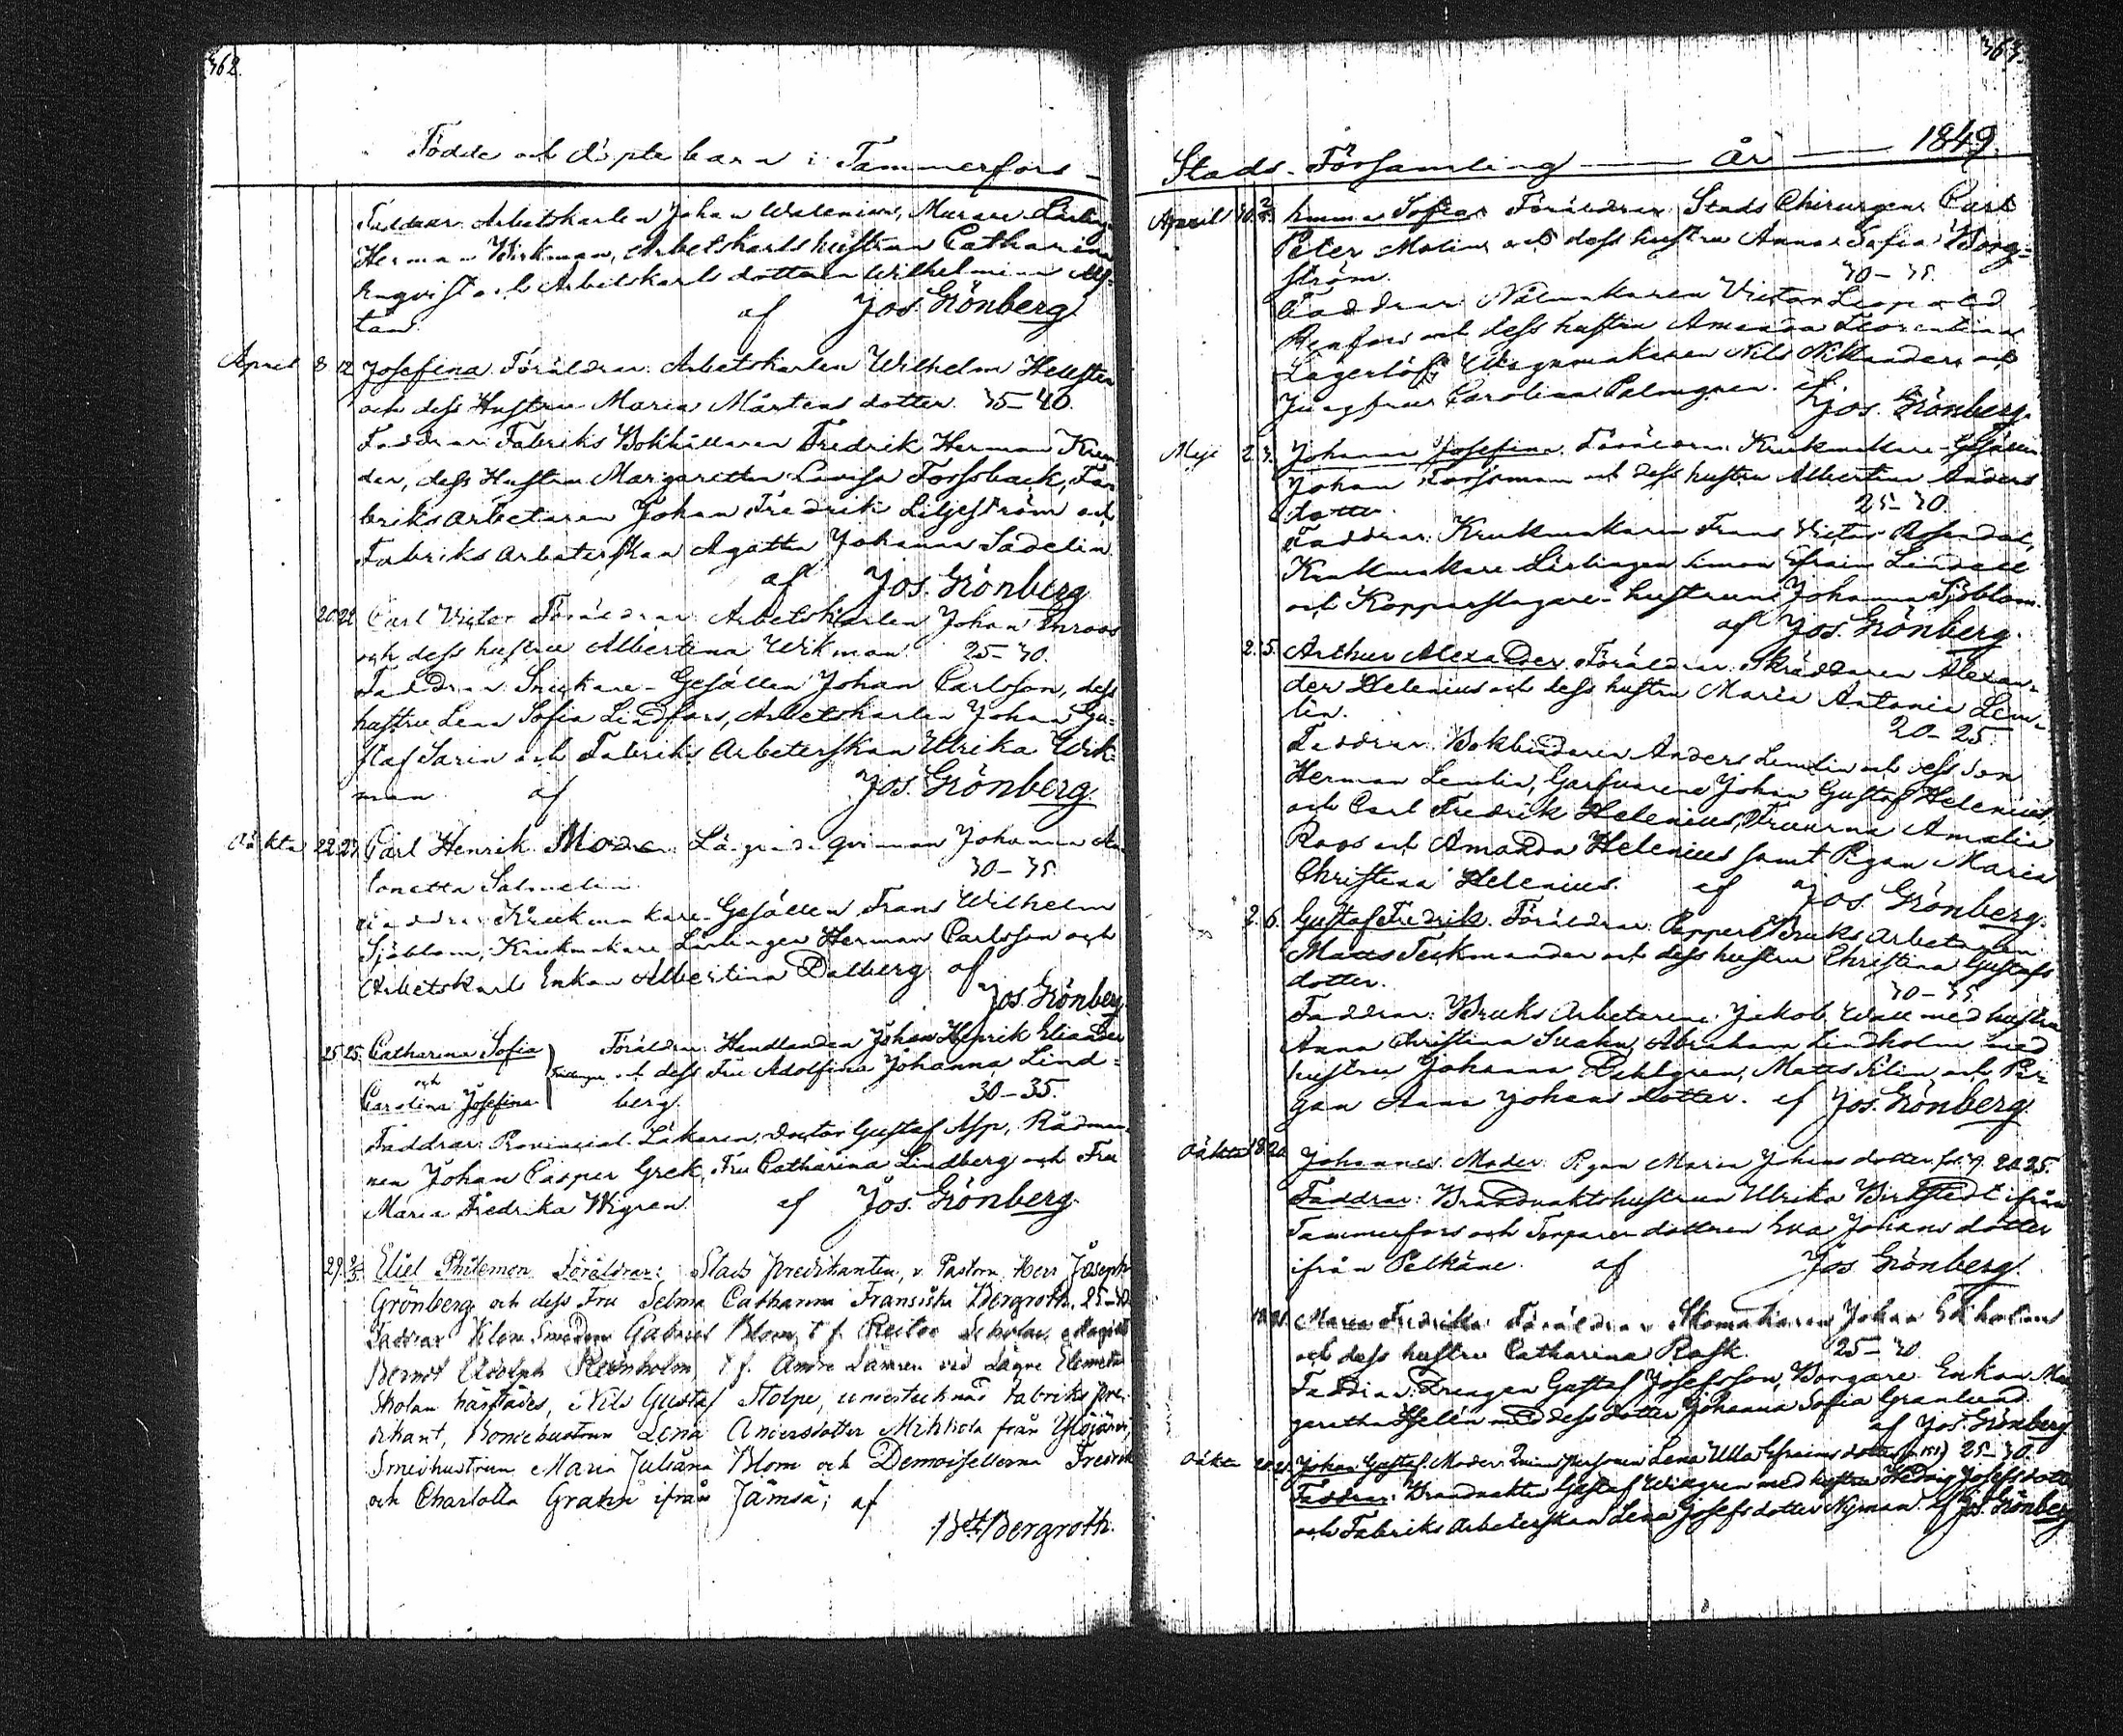 362.
Födde och döpte barn i Tammerfors
Faddrar: Arbetskarlen Johan Walenius, Murare Lärling
Herman Wirkman, Arbetskarlshustrun Catharina
Engvist och Arbetskarls dottren Wilhelmina
af Jos. Grönberg
April 8 12 Josefina. Föräldrar: Arbetskarlen Wilhelm Hellsten
och dess Hustru Maria Mårtens dotter. 35–40.
Faddrar: Fabriks Bokhållaren Fredrik Herman
der, dess Hustru Margaretha Lovisa Forssback, Fa-
briksarbetaren Johan Fredrik Liljeström och
Fabriks arbeterskan Agatha Johanna Sadelin
af Jos. Grönberg
20 22 Carl Victor Föräldrar: Arbetskarlen Johan Enroos
och dess hustru Albertina Wikman 25–30.
Faddrar: Snickare-Gesällen Johan Carlsson, dess
hustru Lena Sofia Lindfors, Arbetskarlen Johan Gu-
staf Sarin och Fabriks Arbeterskan Ulrika Wik-
man af Jos. Grönberg
Oäkta 22 23 Carl Henrik. Moder: Johanna An-
tonetta Salmelin 30–35.
Faddrar: Krukmakare-Gesällen Frans Wilhelm
Sjöblom, Krukmakare Lärlingen Herman Carlsson och
Arbetskarls Enkan Albertina Dalberg af
Jos. Grönberg
25 25 Catharina Sofia Föräldrar: Handlanden Johan Henrik Eliander
och Tvillingar och dess Fru Adolfina Johanna Lind-
Carolina Josefina berg. 30–35.
Faddrar: Provincial Läkaren, Doctor Gustaf Asp, Rådman-
nen Johan Casper Grek, Fru Catharina Lindberg och Fru
Maria Fredrika Wigren. af Jos. Grönberg.
29 2/5 Eliel Philemon Föräldrar: Stads predikanten, v. Pastorn, Herr Joseph
Grönberg och dess Fru Selma Catharina Fransiska Bergroth. 25–30
Faddrar Gabriel Blom, t. f. Rector Scholae, Magist.
Berndt Adolph Reinholm, t. f. Andre Läraren vid Lägre Elementar
Skolan härstädes, Nils Gustaf Stolpe, undertecknad Fabriks pre-
dikant, Bondehustrun Lena Andersdotter Mikkola från Ylöjärvi,
Smedhustrun Maria Juliana Blom och Demoisellerna Fredrika
och Charlotta Grahn ifrån Jämsä; af
Bergroth.
363.
Stads-Församling — År — 1849.
April 30 2/5 Emma Sofia Föräldrar: Stads Chirurgen Carl
Peter Molin och dess hustru Anna Sofia Borg-
ström. 30–35.
Faddrar: Nålmakaren Victor Leopold
Renfors och dess hustru Amanda Florentina
Lagerlöf, Wagnmakaren Nils Nikander och
Jungfru Carolina Palmgren. af
Jos. Grönberg.
Maji 2 3 Johanna Josefina. Föräldrar: Krukmakare-Gesällen
Johan Forssman och dess hustru Albertina Anders
dotter. 25–30.
Faddrar: Krukmakaren Frans Victor Rosendal,
Krukmakare Lärlingen Simon Efraim Lindell
och Kopparslagare-hustrun Johanna Sjöblom.
af Jos. Grönberg.
2 5 Arthur Alexander. Föräldrar: Skräddaren Alexan-
der Helenius och dess hustru Maria Antonia Lem-
lin. 20–25
Faddrar: Bokbindaren Anders Lemlin och dess son
Herman Lemlin, Garfvarene Johan Gustaf Helenius,
och Carl Fredrik Helenius, Fruarna Amalia
Roos och Amanda Helenius samt Pigan Maria
Christina Helenius. af Jos. Grönberg.
2 6 Gustaf Fredrik. Föräldrar: Pappers Bruks Arbetaren
Matts Teckmander och dess hustru Christina Gustafs
dotter. 30–35.
Faddrar: Bruks Arbetarene Jakob Wall med hustru
Anna Christina Svahn, Abraham Lindholm med
hustru Johanna Dahlgren, Matts Silin och Pi-
gan Anna Johans dotter. af Jos. Grönberg.
Oäkta 18 20 Johannes. Moder: Pigan Maria Johans dotter 20–25.
Faddrar: Brandvaktshustrun Ulrika Birkstedt ifrån
Tammerfors och Torpare dottren Eva Johans dotter
ifrån Pelkäne. af Jos. Grönberg.
Maria Fredrika Föräldrar: Skomakaren Johan Ekholm
och dess hustru Catharina Rask. 25–30
Faddrar: Drengen Gustaf Josefsson, Borgare Enkan Mar-
garetha Helén med dess dotter Johanna Sofia Granlund.
af Jos. Grönberg
Oäkta Johan Gustaf. Moder: Lena Ulla Efraims dotter 25–30.
Faddrar: Brandvakten Gustaf Wikgren med hustru Hedvig Josefs dotter
och Fabriks Arbeterskan Lena Josefs dotter Nyman. af Jos. Grönberg